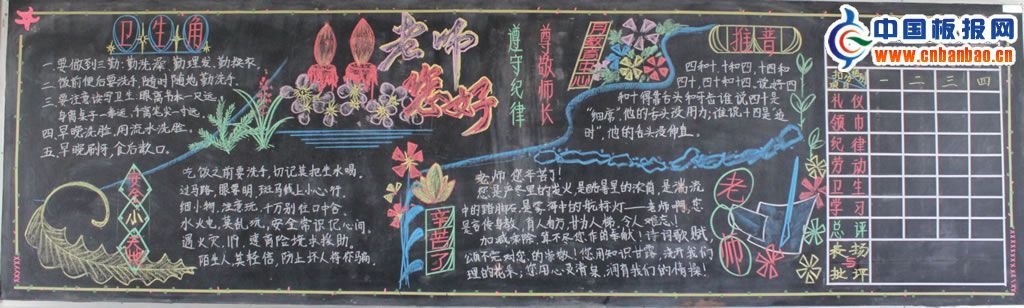 卫生角
一.要做到三勤:勤洗澡 勤理发、勤换衣.
二.饭前便后要洗手,随时随地勤洗手.
三.要注意读写卫生:眼离书本一尺远,
身离桌子一拳远,手离笔尖一寸远.
四.早晚洗脸,用流水洗脸.
五.早晚刷牙,食后漱口.
老师
您好
遵守纪律
尊敬师长
推普
四和十、十和四,十四和
四十,四十和十四,说好四
和十得靠舌头和牙齿谁说四十是
"细席",他的舌头没用力;谁说十四是"适
时",他的舌头没伸直.
安全小天地
吃饭之前要洗手,切记莫把生水喝.
过马路,眼要明,斑马线上小心行.
细小物,注意玩,千万别往口中含.
水火电,莫乱玩,安全常识记心间.
遇火灾,119,遭遇险境求救助.
陌生人,莫轻信,防上坏人将你骗.
辛苦了
老师,您辛苦了!
您是严冬里的炭火,是酷暑里的浓荫,是湍流
中的踏脚石,是雾海中的航标灯——老师啊,您
言传身教,育人有方,甘为人梯,令人难忘!
加减乘除,算不尽您作的奉献!诗词歌赋
颂不完对您的崇敬!您用知识甘露,浇开我们
理想的花朵;您用心灵清泉,润育我们的情操!
老师
一 二 三 四
礼仪
领巾
纪律
劳动
卫生
学习
总评
表扬
与
批评
中国板报网
www.cnbanbao.cn